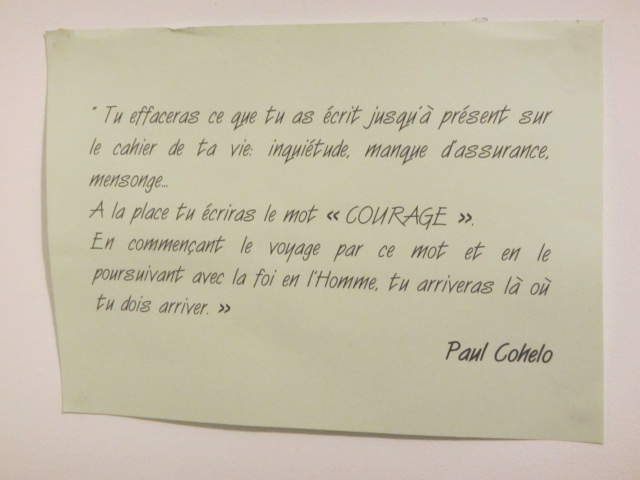 " Tu effaceras ce que tu as écrit jusqu'à présent sur
le cahier de ta vie: inquiétude, manque d'assurance,
mensonge...
A la place tu écriras le mot « COURAGE ».
En commençant le voyage par ce mot et en le
poursuivant avec la foi en l'Homme, tu arriveras là où
tu dois arriver. »
Paul Cohelo